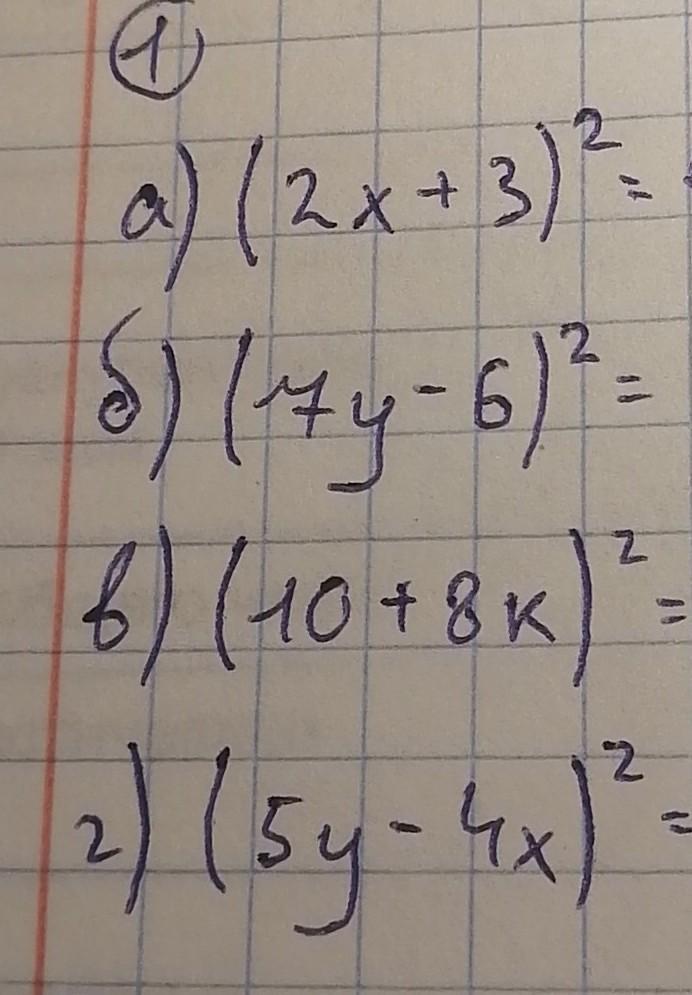 1
а) (2x + 3)² =
б) (7y - 6)² =
в) (10 + 8к)² =
г) (5y - 4x)² =